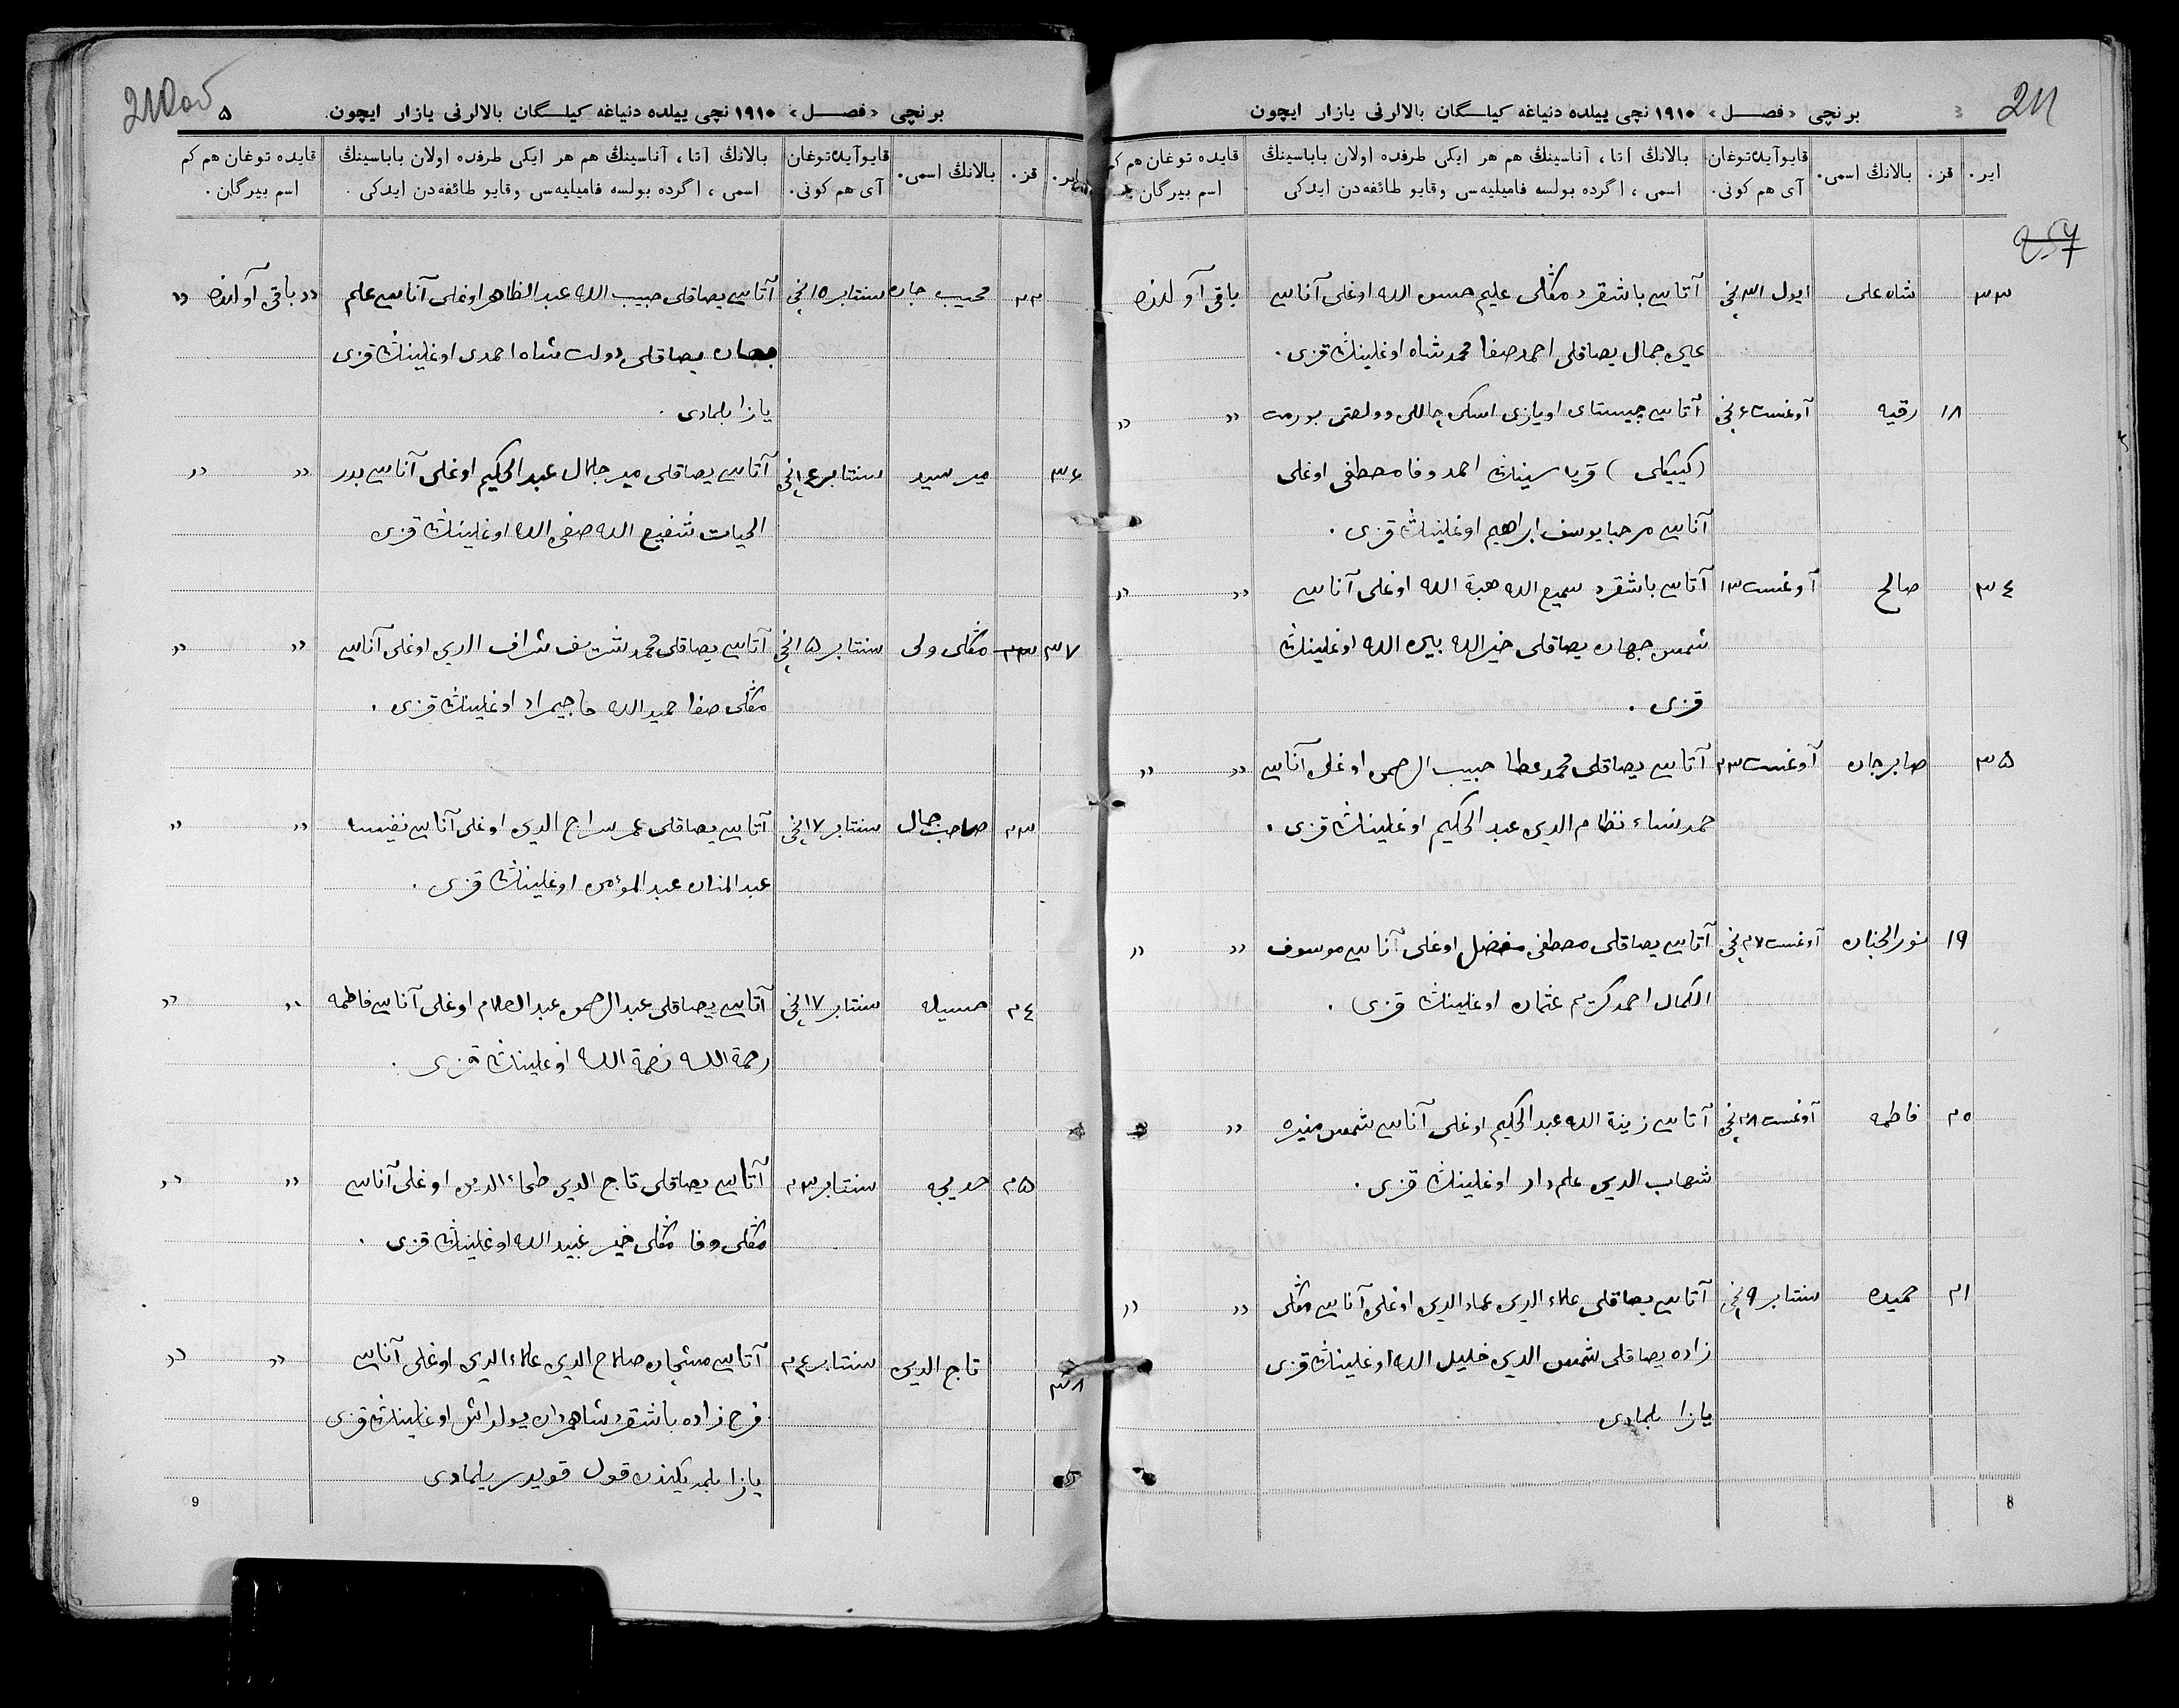 211
برنچی «فصـــل» ١٩١٠ نچی ییلده دنیاغه کیلــگان بالالرنی یازار ایچون
ایر. قز. بالانڭ اسمی. قایوآیده‌توغان آی هم کونی. بالانڭ آتا ، آناسینڭ هم هر ایکی طرفده اولان باباسینڭ اسمی ، اگرده بولسه فامیلیه‌سی وقایو طائفه‌دن ایدکی قایده توغان هم کم اسم بیرگان.
257
٣٣ شاه علی ایول ٣١ نچی آتاسی باشقرد منڭلی علیم حسن الله اوغلی آناسی باقی آولنده
جمال یصاقلی احمدصفا محمدشاه اوغلینڭ قزی .
١٨ رقیه آوغست ٦ نچی آتاسی چیستای اویازی اسکی چاللی وولصتی ״ ״
قریاسینڭ احمد وفا مصطفی اوغلی
آناسی مرحبا یوسف ابراهیم اوغلینڭ قزی .
٣٤ صالح آوغست ١٣ آتاسی باشقرد سمیع الله هبة الله اوغلی آناسی ״ ״
شمس جهان یصاقلی خیرالله اوغلینڭ
قزی .
٣٥ صابرجان آوغست ٢٣ آتاسی یصاقلی محمدعطا حبیب الرحمن اوغلی آناسی ״ ״
حمدنساء نظام الدین عبد الحکیم اوغلینڭ قزی .
١٩ نورالجنان آوغست ٢٧ نچی آتاسی یصاقلی مصطفی مفضل اوغلی آناسی موسوف ״ ״
الکمال احمدکریم عثمان اوغلینڭ قزی .
٢٠ فاطمه آوغست ٢٨ نچی آتاسی زینة الله عبد الحکیم اوغلی آناسی شمس منیره ״ ״
شهاب الدین علم‌دار اوغلینڭ قزی .
٢١ حمیده سنتابر ٩ نچی آتاسی یصاقلی علاء الدین عماد الدین اوغلی آناسی منڭلی ״ ״
زاده یصاقلی شمس الدین خلیل الله اوغلینڭ قزی
یازا بلمادی
8
٥
برنچی «فصـــل» ١٩١٠ نچی ییلده دنیاغه کیلــگان بالالرنی یازار ایچون.
ایر. قز. بالانڭ اسمی. قایوآیده‌توغان آی هم کونی. بالانڭ آتا ، آناسینڭ هم هر ایکی طرفده اولان باباسینڭ اسمی ، اگرده بولسه فامیلیه‌سی وقایو طائفه‌دن ایدکی . قایده توغان هم کم اسم بیرگان .
٢٢ محیب جان سنتابر ١٥ نچی آتاسی یصاقلی حبیب الله عبد الظاهر اوغلی آناسی علم ״ باقی آولنده ״
جهان یصاقلی دولت شاه احمدی اوغلینڭ قزی
یازا بلمادی .
٣٦ میر سید سنتابر ١٤ نچی آتاسی یصاقلی میر جلال عبد الحکیم اوغلی آناسی بدر ״ ״
الحیات شفیع الله صفی الله اوغلینڭ قزی
٣٧ منڭلی ولی سنتابر ١٥ نچی آتاسی یصاقلی محمد شریف شراف الدین اوغلی آناسی ״ ״
منڭلی صفا حمید الله حاجیمراد اوغلینڭ قزی .
٢٣ صاحب جمال سنتابر ١٧ نچی آتاسی یصاقلی عمر سراج الدین اوغلی آناسی نفیسه ״ ״
عبد المنان عبد المؤمن اوغلینڭ قزی .
٢٤ حسیله سنتابر ١٧ نچی آتاسی یصاقلی عبد الرحمن عبد السلام اوغلی آناسی فاطمه ״ ״
رحمة الله نعمة الله اوغلینڭ قزی .
٢٥ خدیجه سنتابر ٢٣ آتاسی یصاقلی تاج الدین اوغلی آناسی ״ ״
منڭلی وفا منڭلی خیر عبید الله اوغلینڭ قزی .
٣٨ تاج الدین سنتابر ٢٤ آتاسی صلاح الدین علاء الدین اوغلی آناسی ״ ״
فرح زاده باشقرد شاهمردان یولداش اوغلینڭ قزی
یازا بلمدیکیندن قول قویدر یلمادی
9